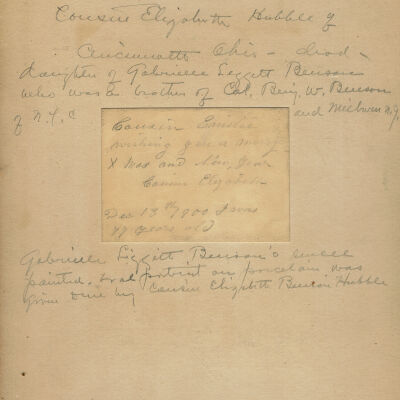 Cousin Elizabeth Hubble of
Cincinnatti Ohio - dead -
daughter of Gabriele Leggett Benson
who was a brother of Col. Benj. W. Benson
of N.Y.C and N.J.
Cousin
wishing you a merry
X Mas and New Year
Cousin Elizabeth
Dec 13th 1900 I was
79 years old
Gabriele Liggett Benson's
painted, oval portrait on porcelain was
given me by Cousin Elizabeth Benson Hubble